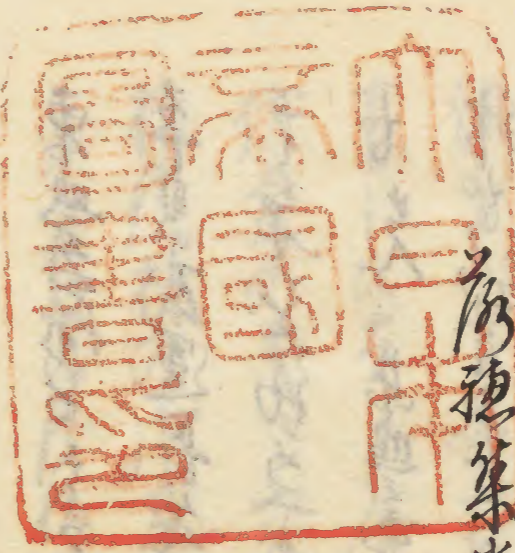 大日本
帝國
圖書印
落穂集